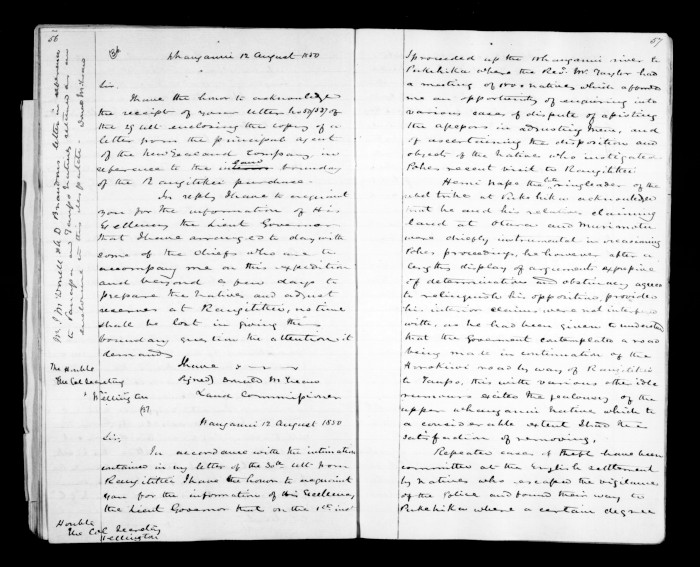 56
Whanganui 12 August 1850
Sir.
I have the honor to acknowledge
the receipt of your letter No 50/537 of
the 29 Ult enclosing the copy of a
letter from the principal agent
of the New Zealand Company in
reference to the inland boundary
of the Rangitikei purchase.
In reply I have to acquaint
you for the information of His
Excellency the Lieut Governor
that I have arranged to day with
some of the Chiefs who are to
accompany me on this expedition
and beyond a few days to
prepare the Natives and adjust
reserves at Rangitikei, no time
shall be lost in giving the
boundary question the attention it
demands
I have
Signed) Donald McLean
Land Commissioner
The Honble
The Col Secretary
Wellington
Wanganui 12 August 1850
Sir,
In accordance with the intimation
contained in my letter of the 30th Ult from
Rangitikei I have the honor to acquaint
you for the information of His Excellency
the Lieut Governor that on the 1st inst
Honble
The Col Secretary
Wellington
57
I proceeded up the Whanganui river to
Pukehika where the Revd Mr Taylor had
a meeting of natives which afforded
me an opportunity of enquiring into
various cases of dispute of assisting
the assessors in adjusting them, and
of ascertaining the disposition and
object of the Natives who instigated
Pohes recent visit to Rangitikei
Hemi Nape the ringleader of the
tribe at Pukehika acknowledged
that he and his relatives claiming
land at Otara and Murimotu
were chiefly instrumental in occasioning
Pohes proceedings, he however after a
lengthy display of arguments expressive
of determination and obstinacy agreed
to relinquish his opposition, provided
his interior claims were not interfered
with, as he had been given to understand
that the Government contemplates a road
being made in continuation of the
Horokiwi road by way of Rangitikei
to Taupo, this with various other idle
rumours excites the jealousy of the
upper Whanganui Native which to
a considerable extent I had the
satisfaction of removing.
Repeated cases of theft have been
committed at the English settlement
by Natives who escaped the vigilance
of the Police and found their way to
Pukehika where a certain degree